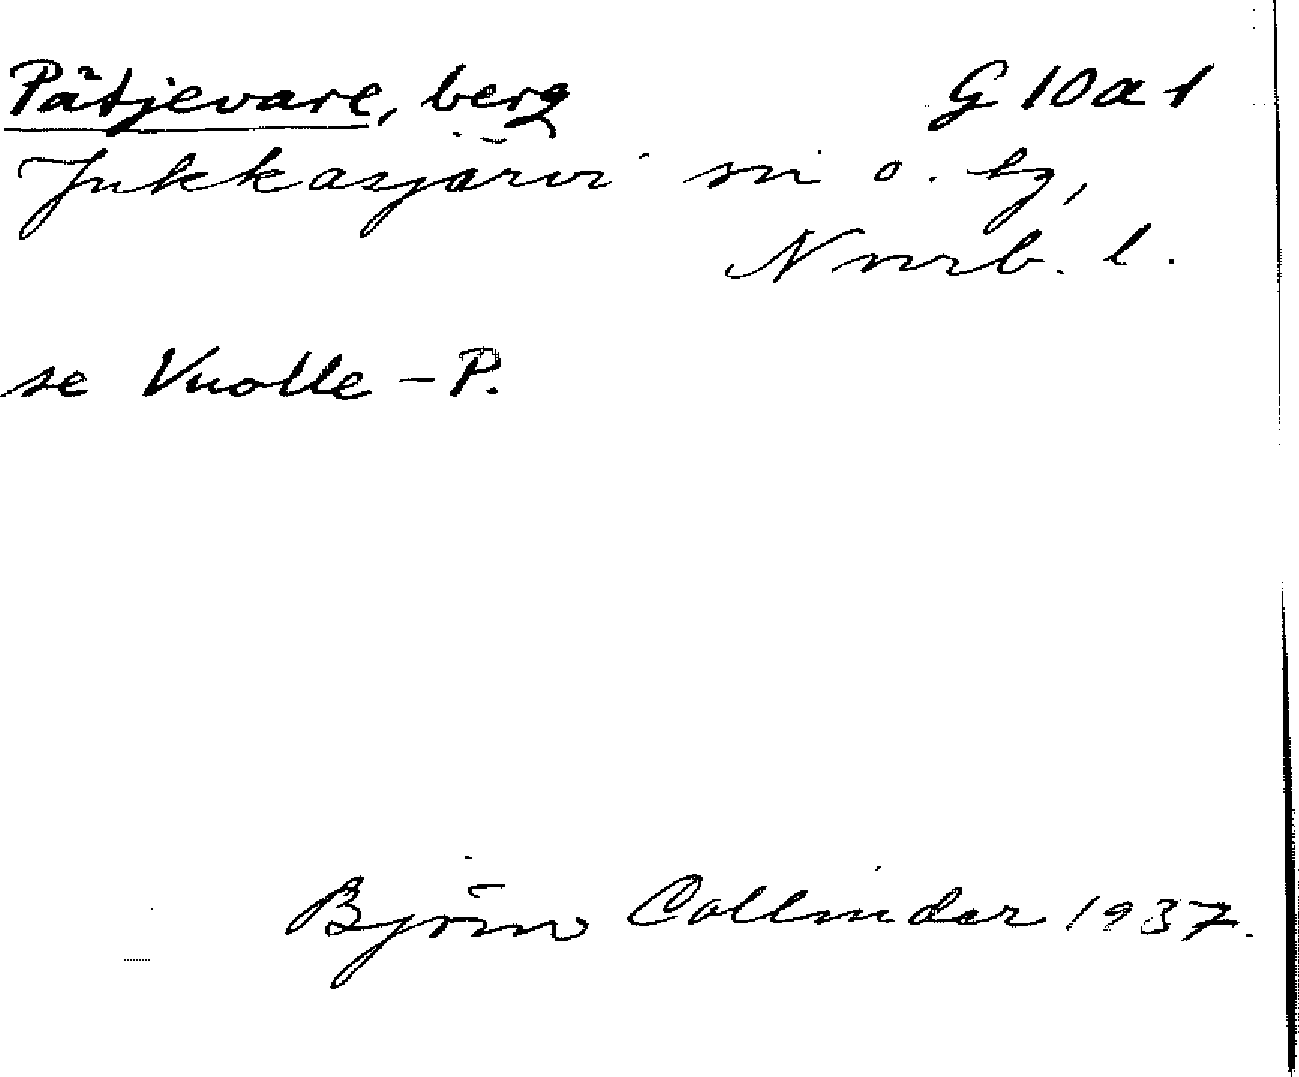 Påtjevare, berg G 10 a 1
Jukkasjärvi sn o. tg,
Norrb. l.
se Vuolle - P.
Björn Collinder 1937.